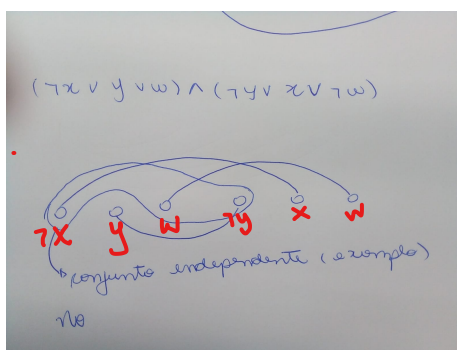 (¬x ∨ y ∨ w) ∧ (¬y ∨ x ∨ ¬w)
¬X y W ¬y X W
conjunto independente (exemplo)
No